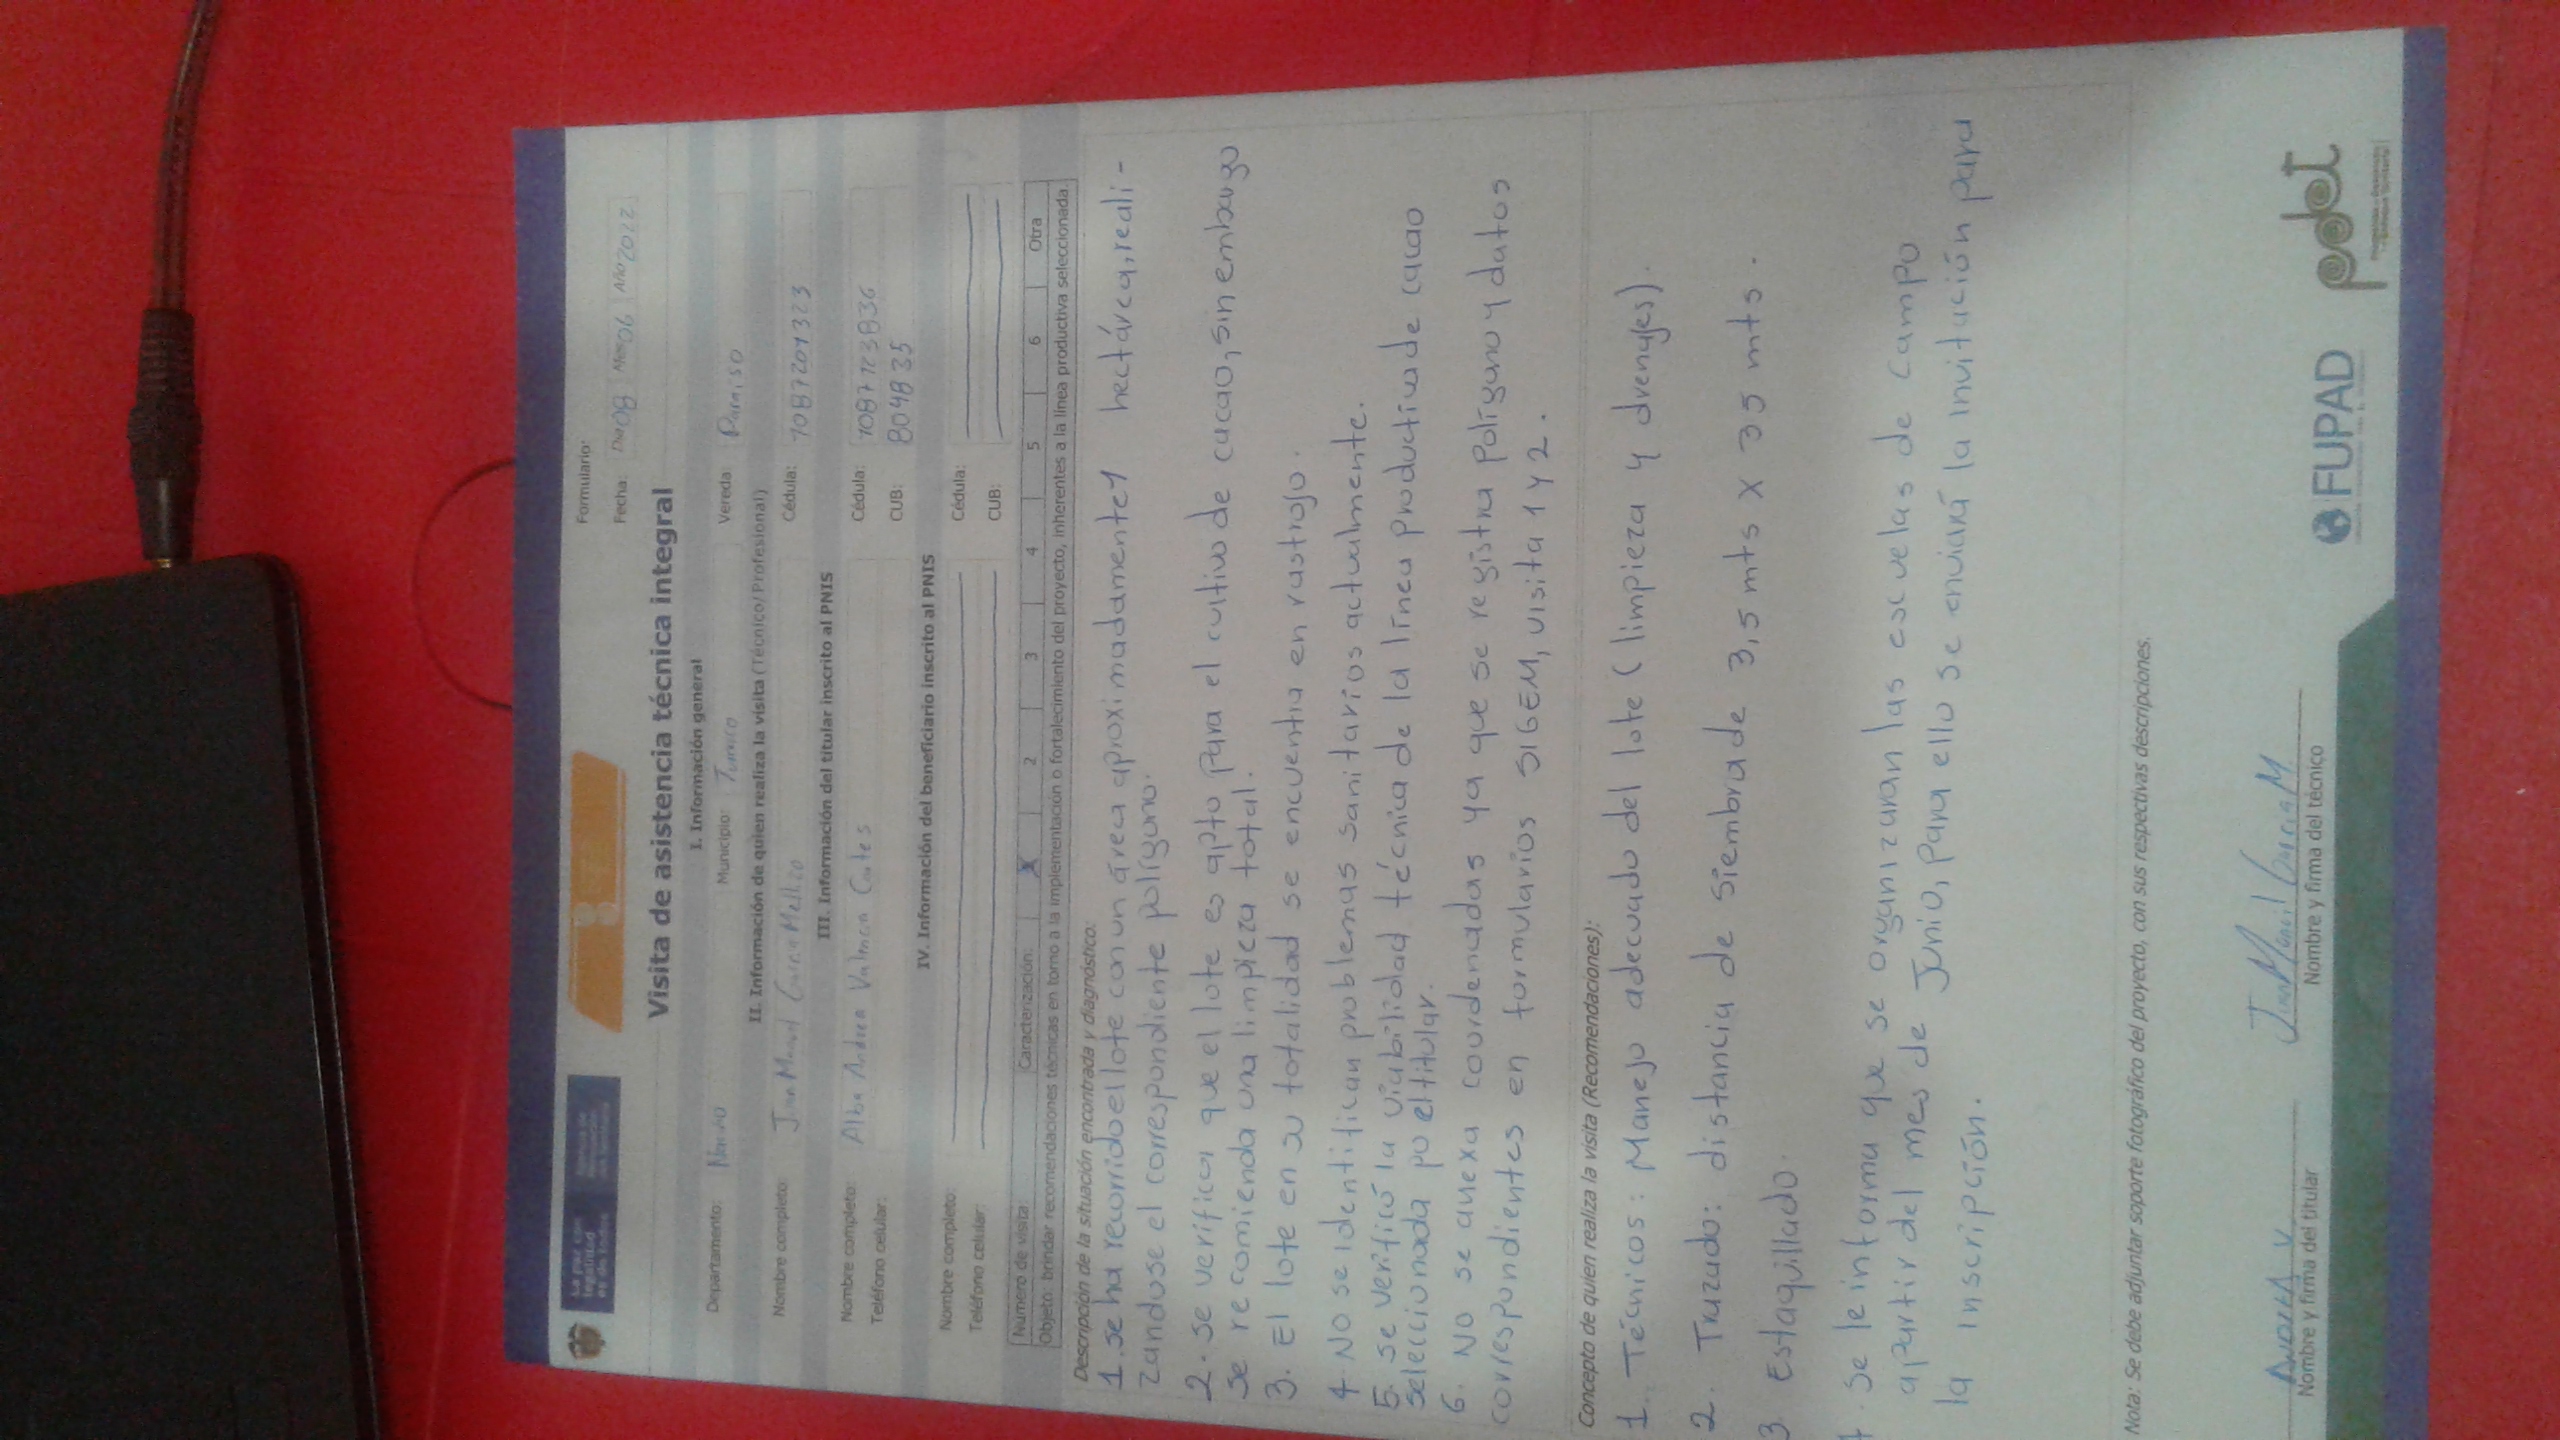 La paz con legalidad es de todos
Formulario:
Fecha: Día 08 Mes 06 Año 2022
Visita de asistencia técnica integral
I. Información general
Departamento: Nariño Municipio: Tumaco Vereda: Paraiso
II. Información de quien realiza la visita (Técnico/Profesional)
Nombre completo: Juan Manuel Garcia Mellizo Cédula: 1087201323
III. Información del titular inscrito al PNIS
Nombre completo: Alba Andrea Valencia Cortes Cédula: 1087123836
Teléfono celular: CUB: 804835
IV. Información del beneficiario inscrito al PNIS
Nombre completo: Cédula:
Teléfono celular: CUB:
Número de visita: Caracterización: X 2 3 4 5 6 Otra
Objeto: brindar recomendaciones técnicas en torno a la implementación o fortalecimiento del proyecto, inherentes a la línea productiva seleccionada.
Descripción de la situación encontrada y diagnóstico:
1. se ha recorrido el lote con un área aproximadamente 1 hectárea, reali-
zandose el correspondiente polígono.
2. se verifica que el lote es apto para el cultivo de cacao, sin embargo
se recomienda una limpieza total.
3. El lote en su totalidad se encuentra en rastrojo.
4. No se identifican problemas sanitarios actualmente.
5. se verificó la viabilidad técnica de la línea productiva de cacao
seleccionada po el titular.
6. No se anexa coordenadas ya que se registra Polígono y datos
correspondientes en formularios SIGEM, visita 1 y 2.
Concepto de quien realiza la visita (Recomendaciones):
1. Técnicos: Manejo adecuado del lote (limpieza y drenajes).
2. Trazado: distancia de siembra de 3,5 mts X 35 mts.
3. Estaquillado.
4. Se le informa que se organizaran las escuelas de campo
apartir del mes de Junio, para ello se enviará la invitación para
la inscripción.
Nota: Se debe adjuntar soporte fotográfico del proyecto, con sus respectivas descripciones.
Andrea V Juan Manuel Garcia M
Nombre y firma del titular Nombre y firma del técnico
FUPAD pdet